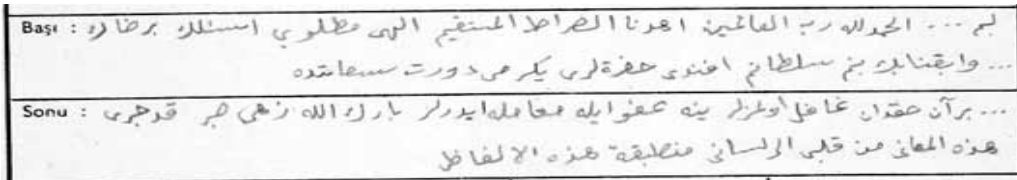 Başı : بسم ... الحمد لله رب العالمين اهدنا الصراط المستقيم الهى مطلوبي اسئلك برضاك
... وابقنابك بنم سلطانم افندى حضرتلرى يكرمى دورت سعاتده
Sonu : ... برآن حقدن غافل اولمزلر ينه عفو ايله معامله ايدرلر بارك الله زهى
هذه المعانى من قلبى الى لسانى منطبقة هذه الالفاظ